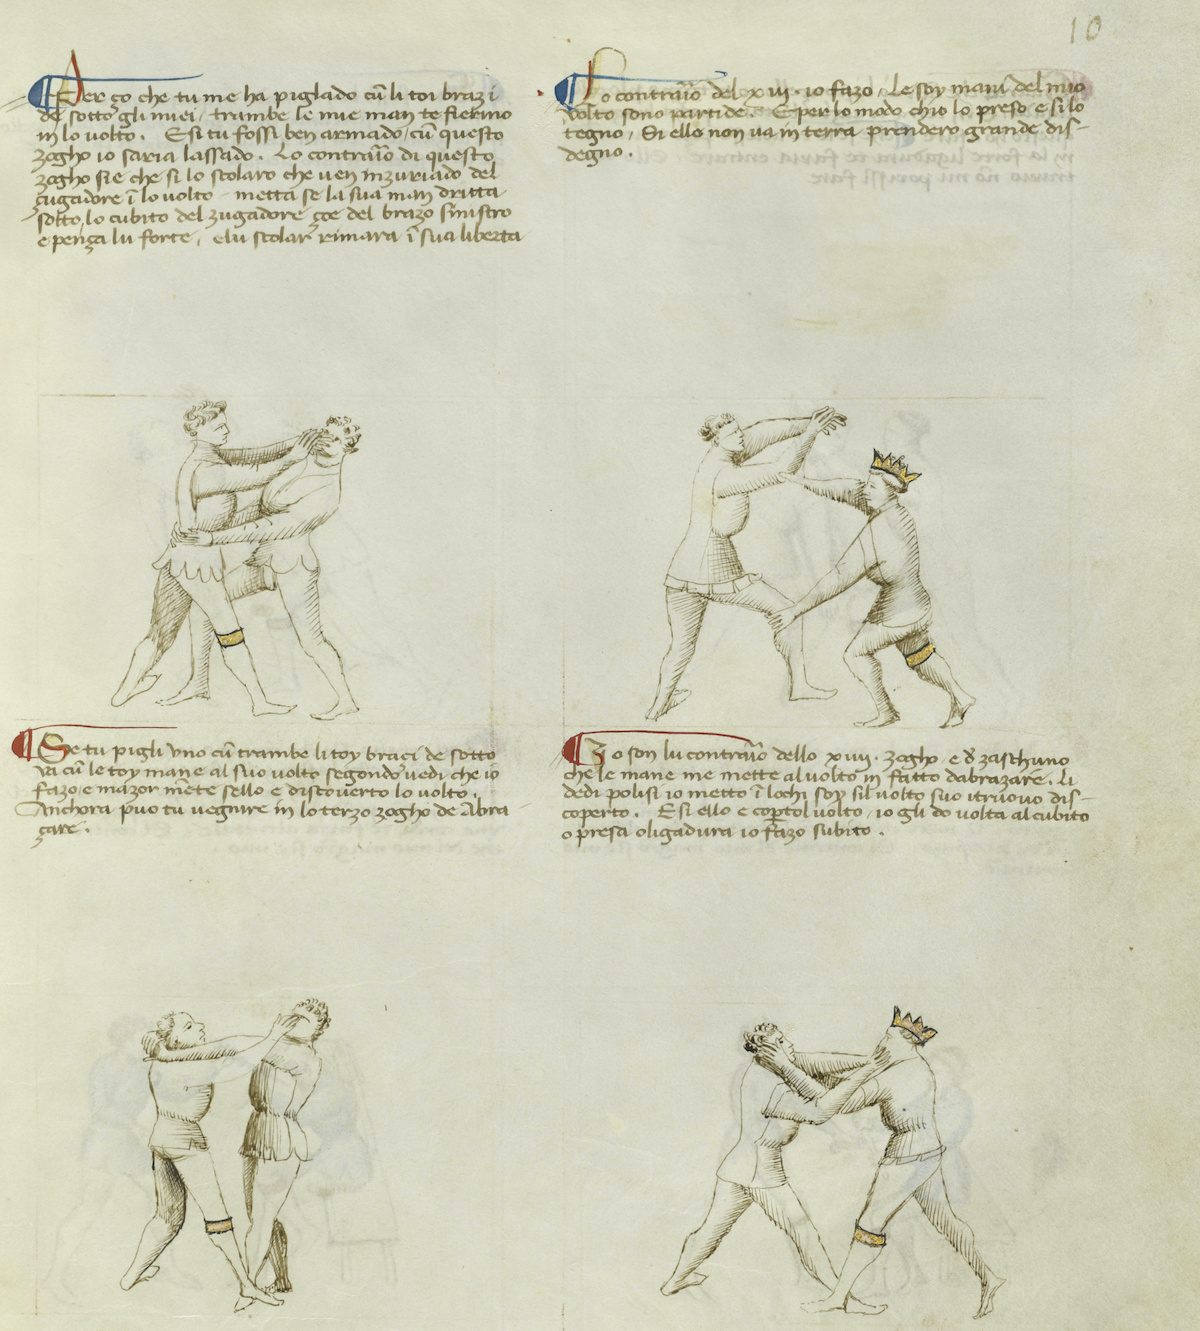 10
Per ço che tu me ha piglado cū li toi brazi
de sotto gli miei, trambe le mie man te fierino
in lo volto. E si tu fossi ben armado, cū questo
zogho io saria lassado. Lo contrāio di questo
zogho sie che si lo scolaro che ven inzuriado del
çugadore ī lo volto, metta se la sua man dritta
sotto lo cubito del zugadore çoe del brazo sinistro
e penga lu forte, e lu scolar rimarà ī sua liberta
Lo contrāio del xiij. io fazo. Le soy mani del mio
volto sono partide. E per lo modo chio lo preso e si lo
tegno, Si ello non va in terra prendero grande dis-
degno.
Se tu pigli uno cū trambe li toy braci de sotto
va cū le toy mane al suo volto segondo vedi che io
fazo e mazor mēte sello e discoverto lo volto.
Anchora puo tu vegnire in lo terzo zogho de Abra
çare.
Io son lu contrāio dello xiiij. zogho, e d zaschuno
che le mane me mette al volto in fatto dabrazare. Li
dedi polisi io metto ī lochi soy, sil volto suo itruovo dis-
coperto. E si ello e coperto l volto, io gli do volta al cubito
o presa o ligadura io fazo subito.